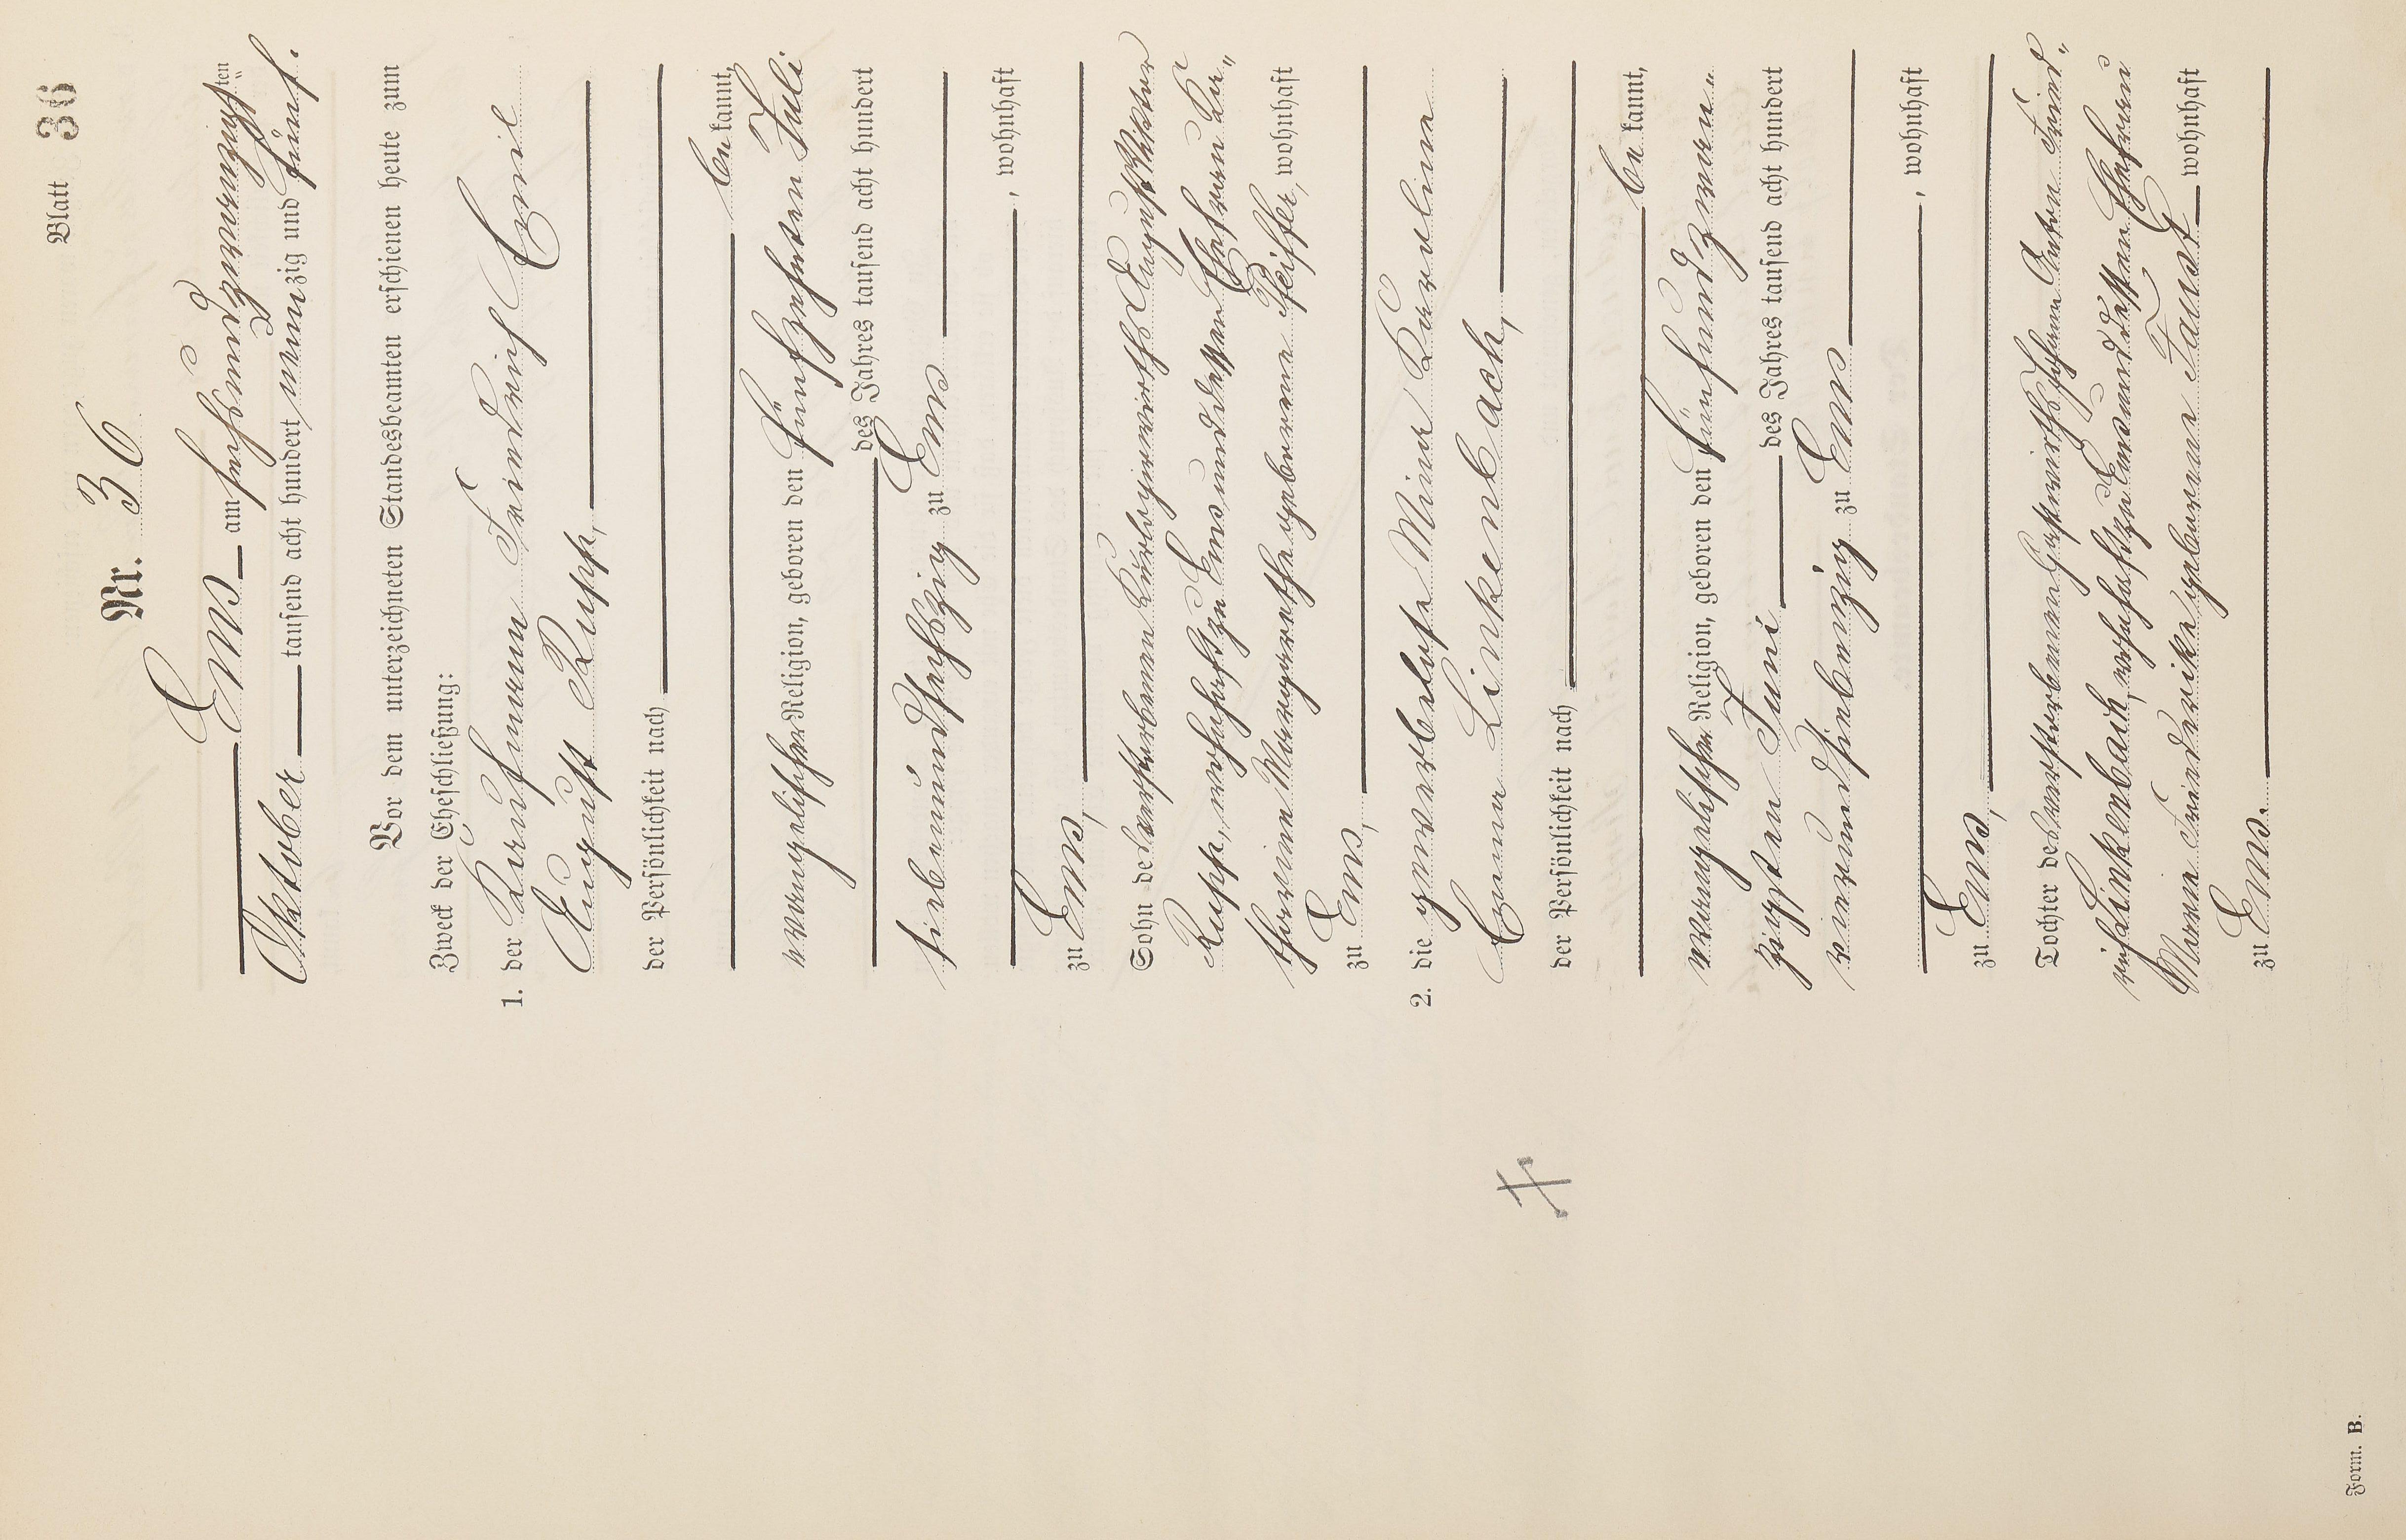 Blatt 36
Nr. 36
Ems am sechsundzwanzigsten
Oktober tausend acht hundert neunzig und fünf.
Vor dem unterzeichneten Standesbeamten erschienen heute zum
Zweck der Eheschließung:
1. der Kaufmann Friedrich Emil
August Rupp,
der Persönlichkeit nach
bekannt,
evangelischer Religion, geboren den fünfzehnten Juli
des Jahres tausend acht hundert
siebenundsechszig zu Ems
, wohnhaft
zu Ems,
Sohn des verstorbenen Kurlogirwirths August Viktor
Rupp, wohnhaft zu Ems und dessen Ehefrau Ka„
tharina Margaretha geborene Pfeiffer, wohnhaft
zu Ems,
2. die gewerbelose Mina Karoline
Emma Linkenbach,
der Persönlichkeit nach
bekannt,
evangelischer Religion, geboren den fünfundzwan„
zigsten Juni des Jahres tausend acht hundert
vierundsiebenzig zu Ems
, wohnhaft
zu Ems,
Tochter des verstorbenen Gastwirths Johann Anton Fried„
rich Linkenbach, wohnhaft zu Ems und dessen Ehefrau
Maria Friederike geborene Faust wohnhaft
zu Ems.
Form. B.